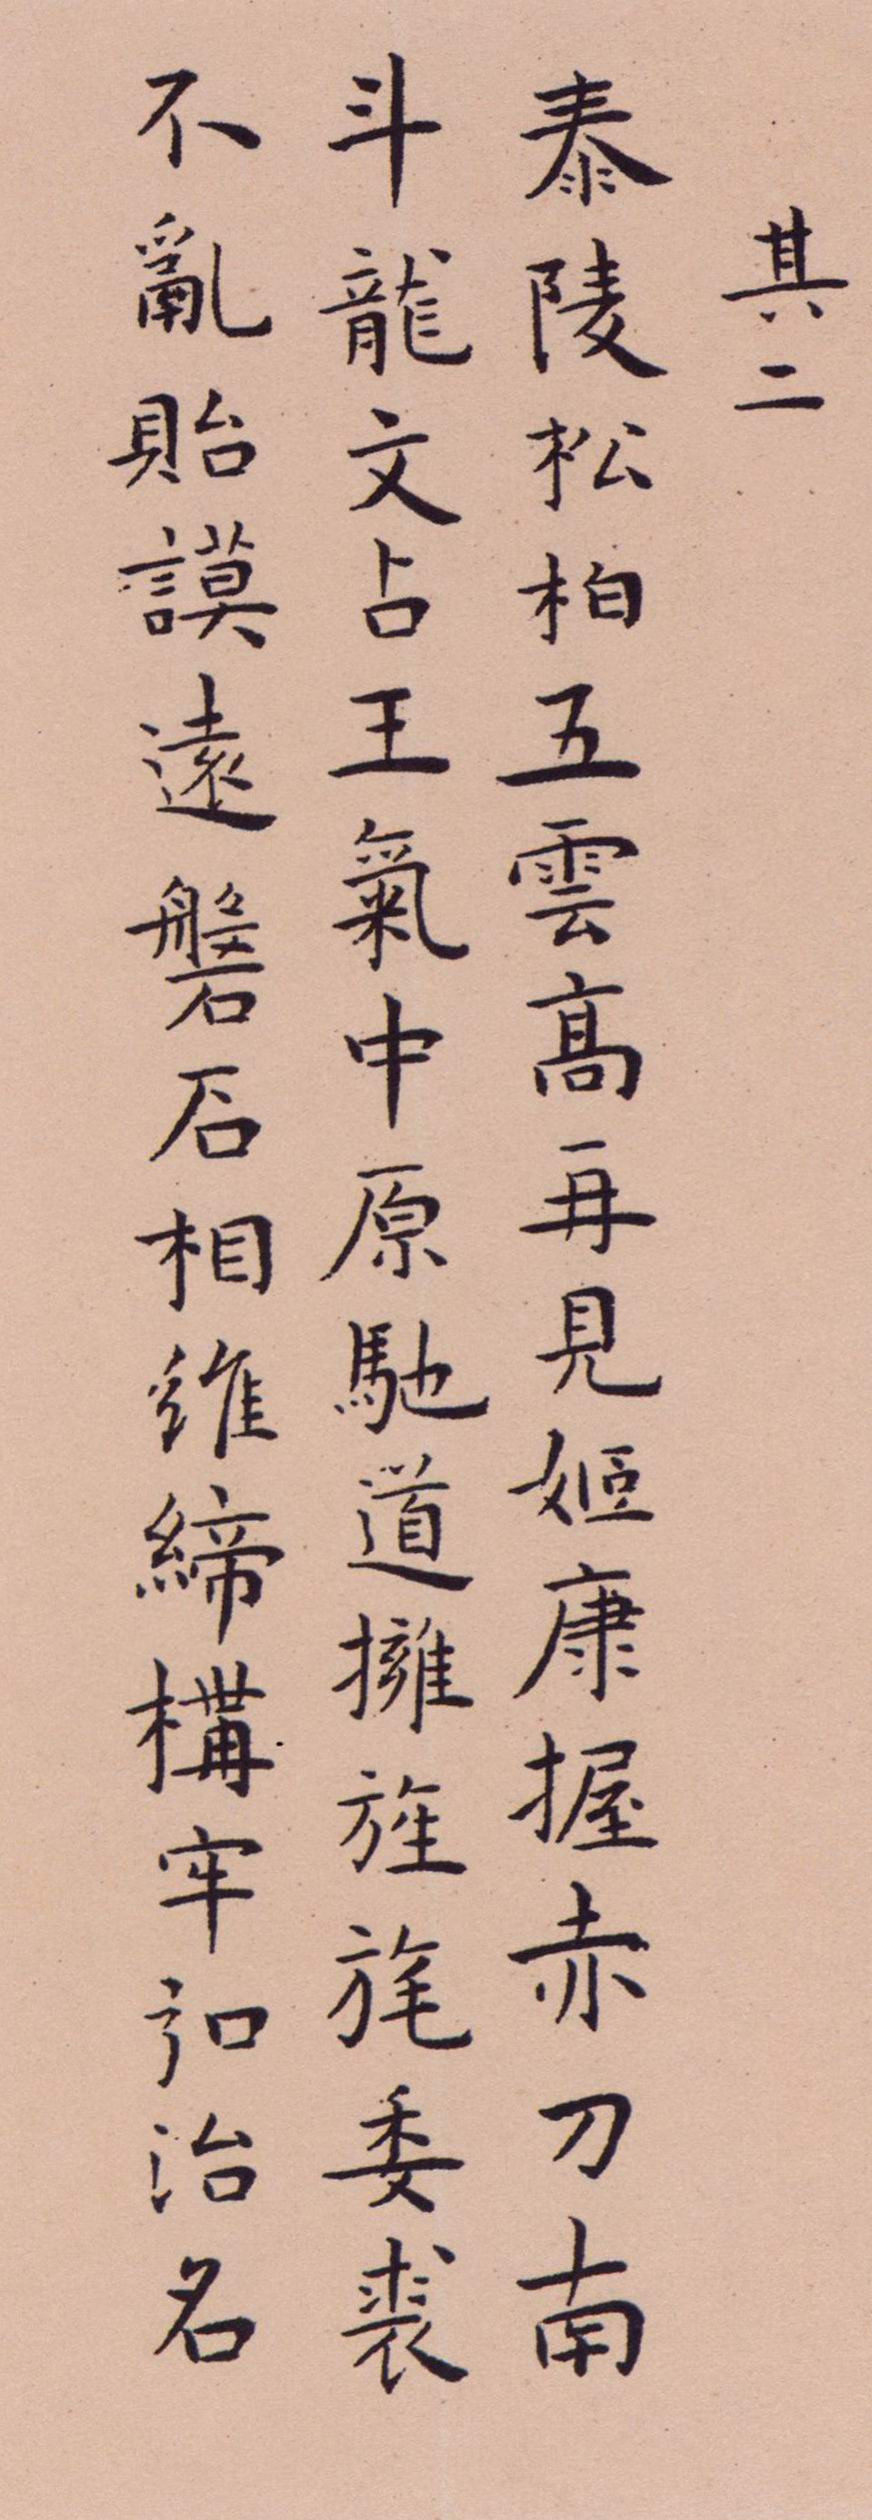 其二
泰陵松柏五雲高再見姬康握赤刀南
斗龍文占王氣中原馳道擁旌旄委裘
不亂貽謨遠磐石相維締構牢弘治名